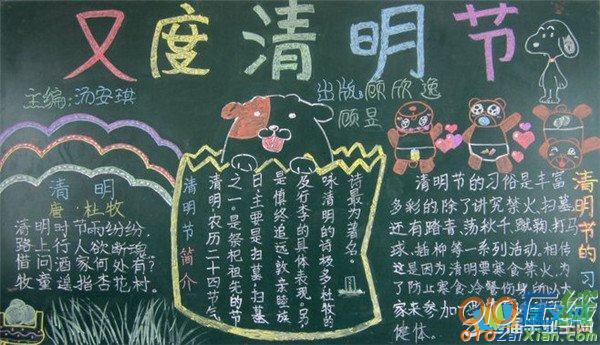 又度清明节
主编:汤安琪
出版:顾欣逸
顾昱
清明
唐·杜牧
清明时节雨纷纷,
路上行人欲断魂。
借问酒家何处有?
牧童遥指杏花村。
清明节简介
清明,农历二十四节气
之一.是祭祀祖先的节
日,主要是扫墓.扫墓
是俱终追远、敦亲睦族
及行孝的具体表现.另,
咏清明的诗极多,杜牧的
诗最为著名
清明节的习
清明节的习俗是丰富
多彩的,除了讲究禁火、扫墓,
还有踏青、荡秋千、蹴鞠、打马
球、插柳等一系列活动。相传
这是因为清明要寒食禁火,为
了防止寒食冷餐伤身,所以大
家来参加
健体。